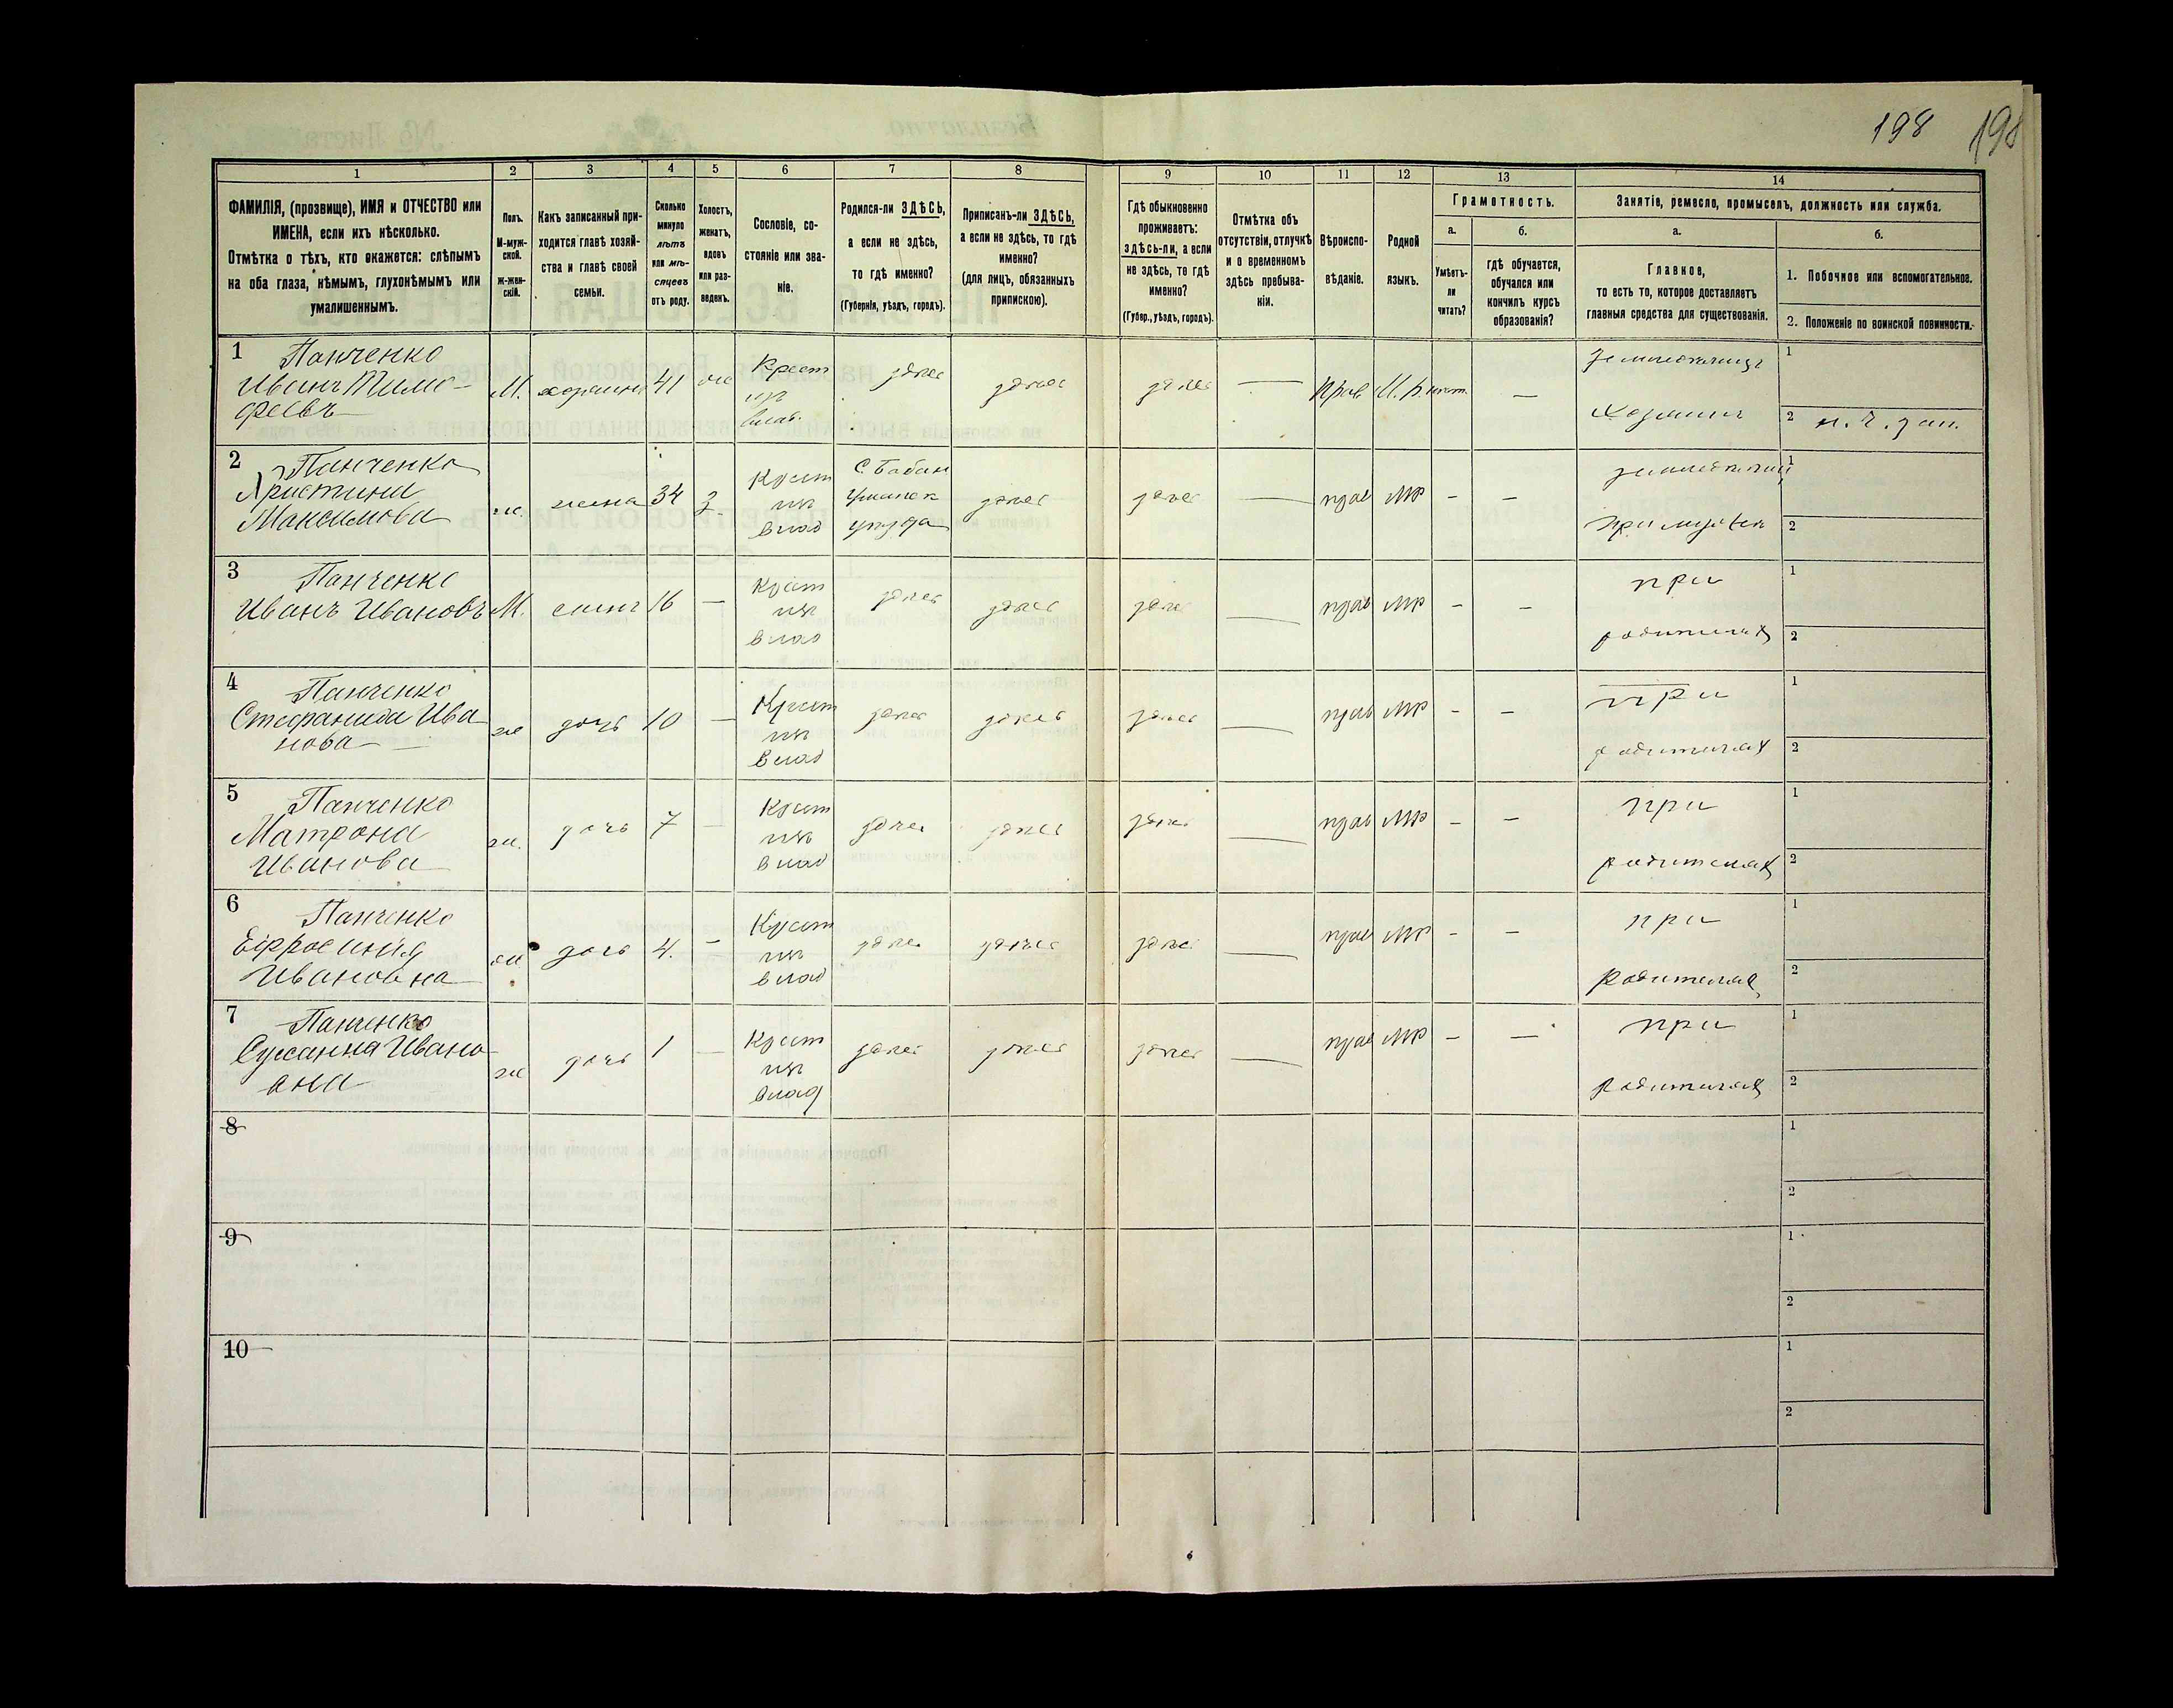 198 198
1 2 3 4 5 6 7 8 9 10 11 12 13 14
ФАМИЛІЯ, (прозвище), ИМЯ и ОТЧЕСТВО или
ИМЕНА, если ихъ нѣсколько.
Отмѣтка о тѣхъ, кто окажется: слѣпымъ
на оба глаза, нѣмымъ, глухонѣмымъ или
умалишеннымъ.
Полъ.
М-муж-
ской.
Ж-жен-
скій.
Какъ записанный при-
ходится главѣ хозяй-
ства и главѣ своей
семьи.
Сколько
минуло
лѣтъ
или мѣ-
сяцевъ
отъ роду.
Холостъ,
женатъ,
вдовъ
или раз-
веденъ.
Сословіе, со-
стояніе или зва-
ніе.
Родился-ли ЗДѢСЬ,
а если не здѣсь,
то гдѣ именно?
(Губернія, уѣздъ, городъ).
Приписанъ-ли ЗДѢСЬ,
а если не здѣсь, то гдѣ
именно?
(для лицъ, обязанныхъ
припискою).
Гдѣ обыкновенно
проживаетъ:
здѣсь-ли, а если
не здѣсь, то гдѣ
именно?
(Губер., уѣздъ, городъ).
Отмѣтка объ
отсутствіи, отлучкѣ
и о временномъ
здѣсь пребыва-
ніи.
Вѣроиспо-
вѣданіе.
Родной
языкъ.
Грамотность.
а.
Умѣетъ-
ли
читать?
б.
гдѣ обучается,
обучался или
кончилъ курсъ
образованія?
Занятіе, ремесло, промыселъ, должность или служба.
а.
Главное,
то есть то, которое доставляетъ
главныя средства для существованія.
б.
1. Побочное или вспомогательное.
2. Положеніе по воинской повинности.
1 Панченко
Иванъ Тимо-
феевъ
М. хозяинъ 41 же Крест
из
влад.
здесь здесь здесь — Прав М. Р. —
хозяинъ
1
2 н. ч. зап.
2 Панченко
Христина
Максимова
ж. жена 34 З. Крест
из
влад
С. Бабан
Уманск
уезда
здесь здесь — прав МР - -
1
2
3 Панченко
Иванъ Ивановъ
М. сынъ 16 — Крест
из
влад
здесь здесь здесь — прав МР - -
при
родителях
1
2
4 Панченко
Стефанида Ива
нова
ж дочь 10 — Крест
из
влад
здесь здесь здесь — прав МР - -
при
родителях
1
2
5 Панченко
Матрона
Иванова
ж. дочь 7 — Крест
из
влад
здесь здесь здесь — прав МР - -
при
родителях
1
2
6 Панченко
Ефросиния
Ивановна
ж дочь 4. — Крест
из
влад
здесь здесь здесь — прав МР - -
при
родителях
1
2
7 Панченко
Сусанна Ивано-
вна
ж дочь 1 — Крест
из
влад
здесь здесь здесь — прав МР - —
при
родителях
1
2
8
1
2
9
1
2
10
1
2